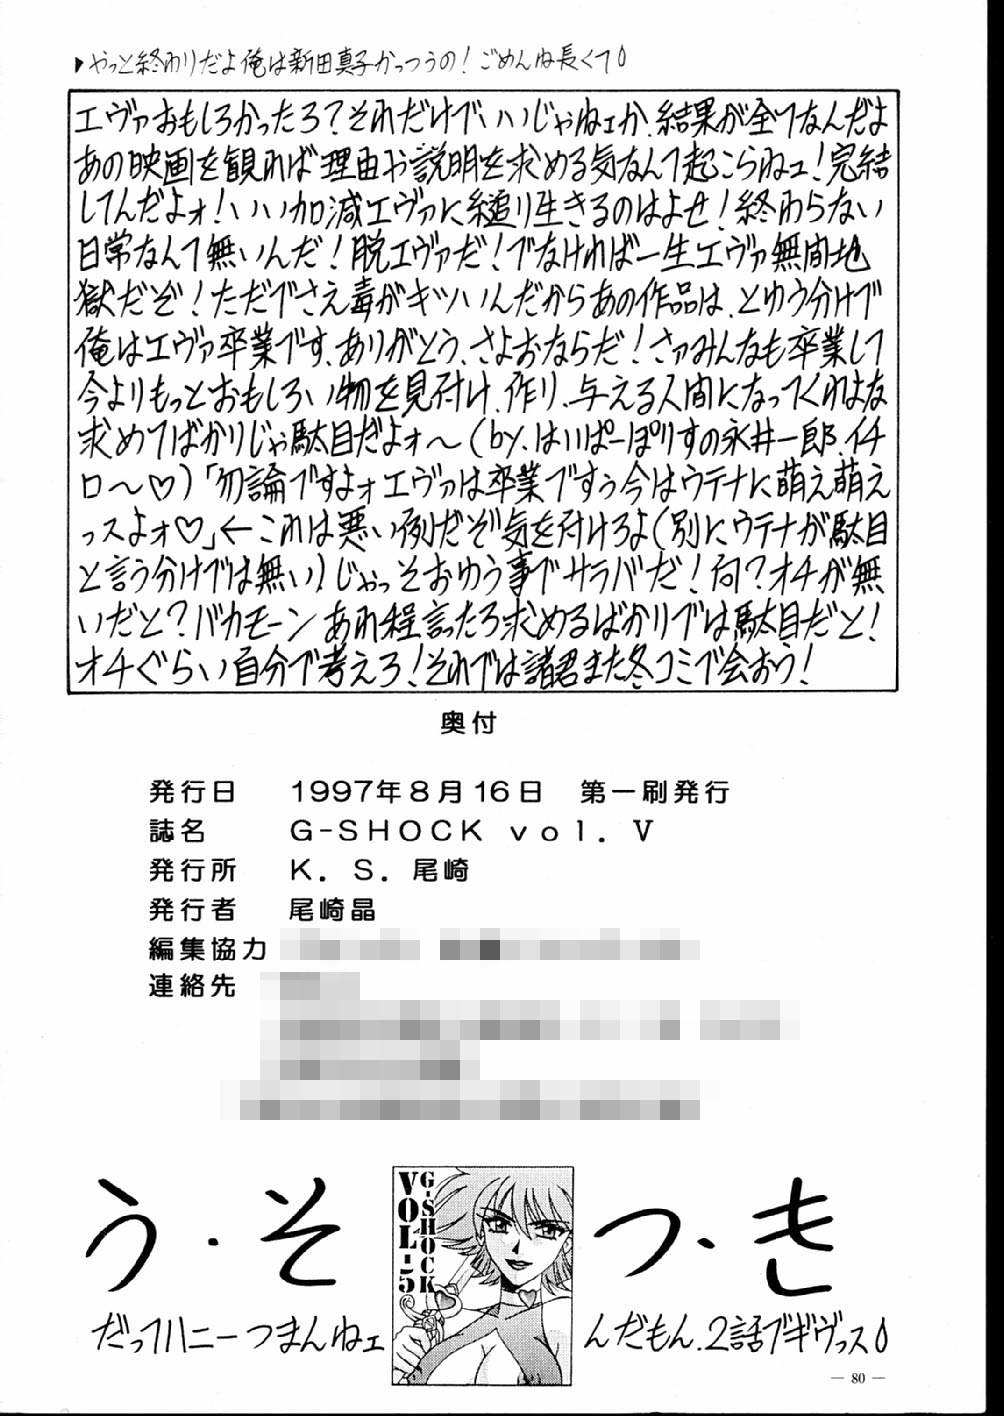 ▶やっと終わりだよ俺は新田真子かっつうの!ごめんね長くて
エヴァおもしろかったろ?それだけでいいじゃねェか、結果が全てなんだよ
あの映画を観れば理由や説明を求める気なんて起こらねェ!完結
してんだよォ!いいい加減エヴァに縋り生きるのはよせ!終わらない
日常なんて無いんだ!脱エヴァだ!でなければ一生エヴァ無間地
獄だぞ!ただでさえ毒がキツいんだからあの作品は、とゆう分けで
俺はエヴァ卒業です、ありがとう、さよおならだ!さァみんなも卒業して
今よりもっとおもしろい物を見付け、作り、与える人間になってくれよな
求めてばかりじゃ駄目だよォ〜(by、はいぱーぽりすの永井一郎、イチ
ロ〜♡)「勿論ですよォエヴァは卒業ですぅ今はウテナに萌え萌え
っスよォ♡」←これは悪い例だぞ気を付けろよ(別にウテナが駄目
と言う分けでは無い)じゃっそおゆう事でサラバだ!何?オチが無
いだと?バカモーンあれ程言ったろ求めるばかりでは駄目だと!
オチぐらい自分で考えろ!それでは諸君また冬コミで会おう!
奥付
発行日 1997年8月16日 第一刷発行
誌名 G-SHOCK vol. V
発行所 K. S. 尾崎
発行者 尾崎晶
編集協力
連絡先
う・そ つ、き
G-SHOCK
VOL-5
だってハニーつまんねェ んだもん、2話でギヴっス
— 80 —